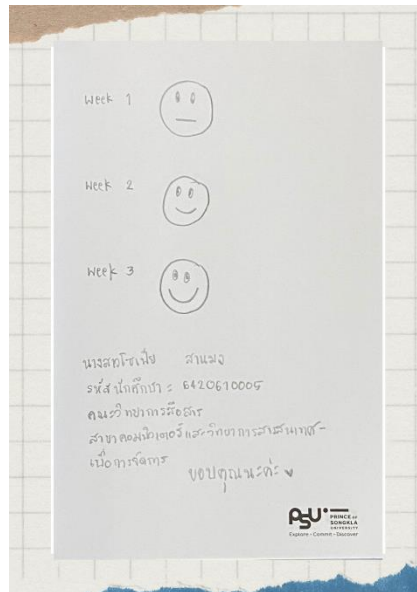 Week 1
Week 2
Week 3
รหัสนักศึกษา : 6420610005
คณะวิทยาการสื่อสาร
สาขาคอมพิวเตอร์และวิทยาการสารสนเทศ-
เพื่อการจัดการ
ขอบคุณนะค่ะ
PSU
PRINCE OF
SONGKLA
UNIVERSITY
Explore - Commit - Discover